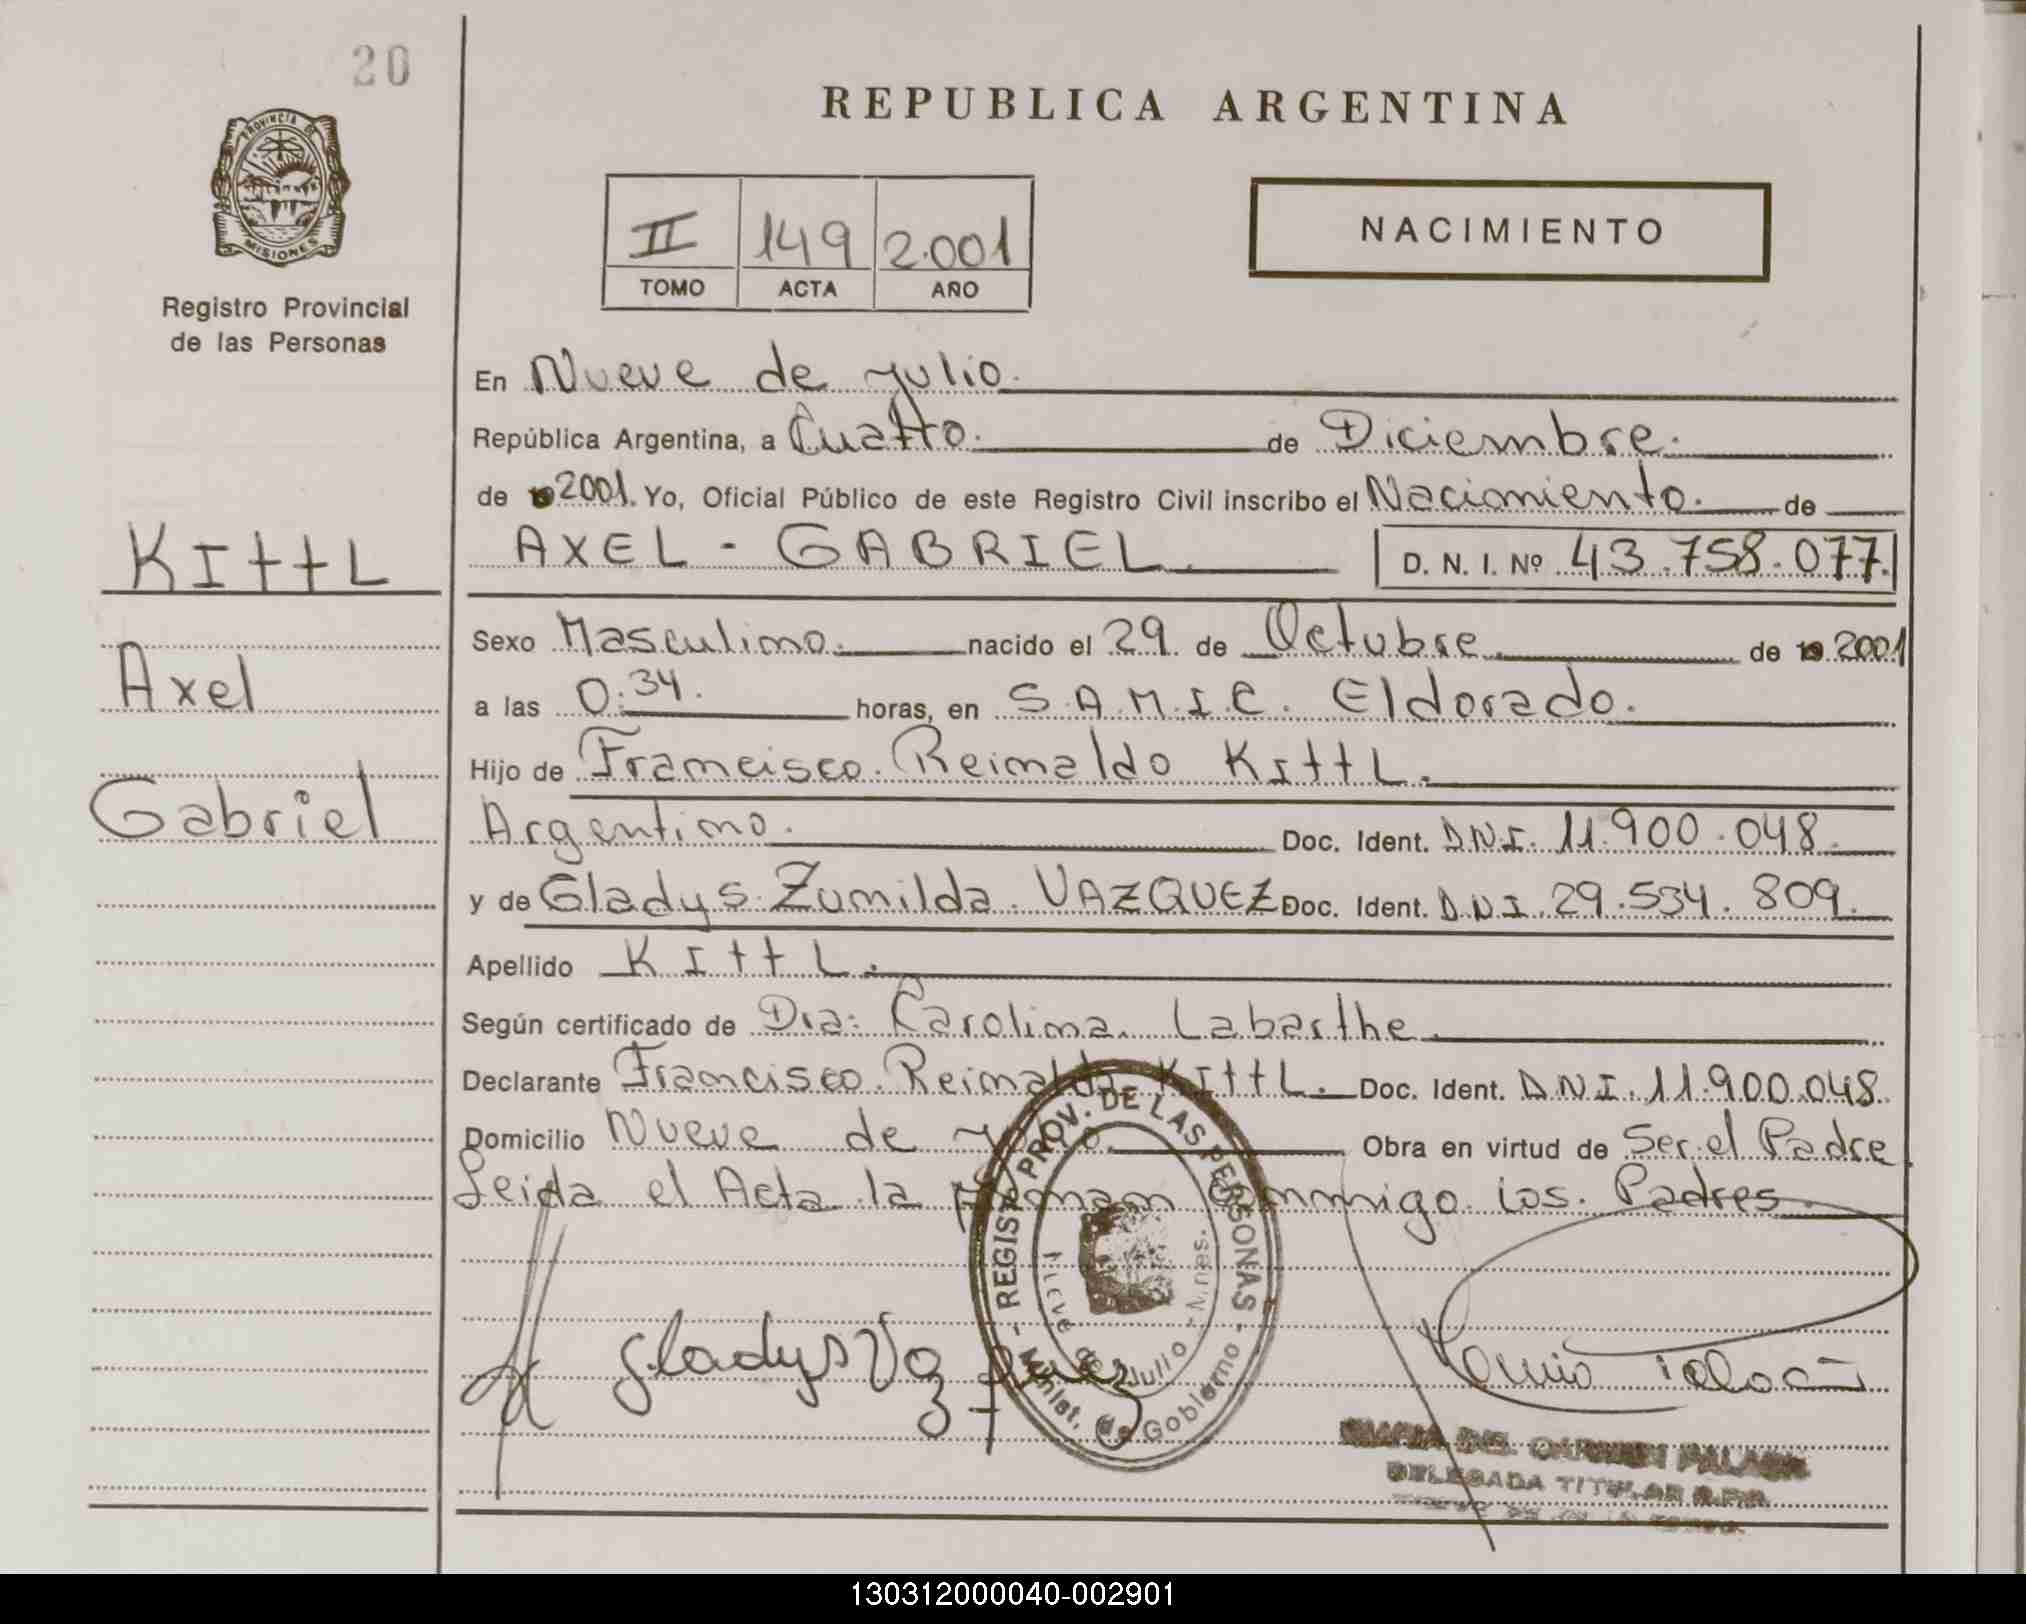 20
REPUBLICA ARGENTINA
PROVINCIA DE
MISIONES
Registro Provincial
de las Personas
II 149 2.001
TOMO ACTA AÑO
NACIMIENTO
En Nueve de julio.
República Argentina, a Cuatro. de Diciembre.
de 2001. Yo, Oficial Público de este Registro Civil inscribo el Nacimiento. de
AXEL - GABRIEL D. N. I. Nº 43.758.077.
KIttL
Axel
Gabriel
Sexo Masculino. nacido el 29. de Octubre. de 2001
a las 0:34. horas, en S.A.M.I.C. Eldorado.
Hijo de Francisco. Reinaldo KIttL.
Argentino. Doc. Ident. D.N.I. 11.900.048.
y de Gladys Zunilda. VAZQUEZ Doc. Ident. D.N.I. 29.534.809.
Apellido KIttL.
Según certificado de Dra: Carolina. Labarthe.
Declarante Francisco. Reinaldo KIttL. Doc. Ident. D.N.I. 11.900.048.
Domicilio Nueve de julio. Obra en virtud de Ser el Padre
Leida el Acta la firman conmigo los. Padres.
REGIST. PROV. DE LAS PERSONAS - Minist. de Gobierno -
Nueve de Julio - Mnes.
Gladys Vazquez
MARIA DEL CARMEN PALACIO
DELEGADA TITULAR R.P.P.
130312000040-002901